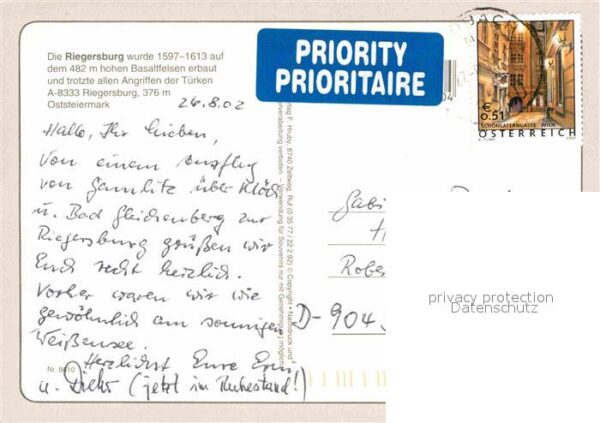 Die Riegersburg wurde 1597–1613 auf
dem 482 m hohen Basaltfelsen erbaut
und trotzte allen Angriffen der Türken
A-8333 Riegersburg, 376 m
Oststeiermark
26.8.02
Hallo, Ihr Lieben,
von einem Ausflug
von Gamlitz über Klöch
u. Bad Gleichenberg zur
Riegersburg grüßen wir
Euch recht herzlich.
Vorher waren wir wie
gewöhnlich am sonnigen
Weißensee.
Herzlichst Eure
u. Dieter (jetzt im Ruhestand!)
Nr. 8810
Verlag F. Hruby, 8740 Zeltweg. Ruf (0 35 77 / 22 2 92) © Copyright • Nachdruck und
Verarbeitung verboten. – Verwendung für Souvenirs nur mit Genehmigung möglich
PRIORITY
PRIORITAIRE
€
0.51
SCHÖNLATERNGASSE WIEN
ÖSTERREICH
Sabi
Rober
D-904
privacy protection
Datenschutz